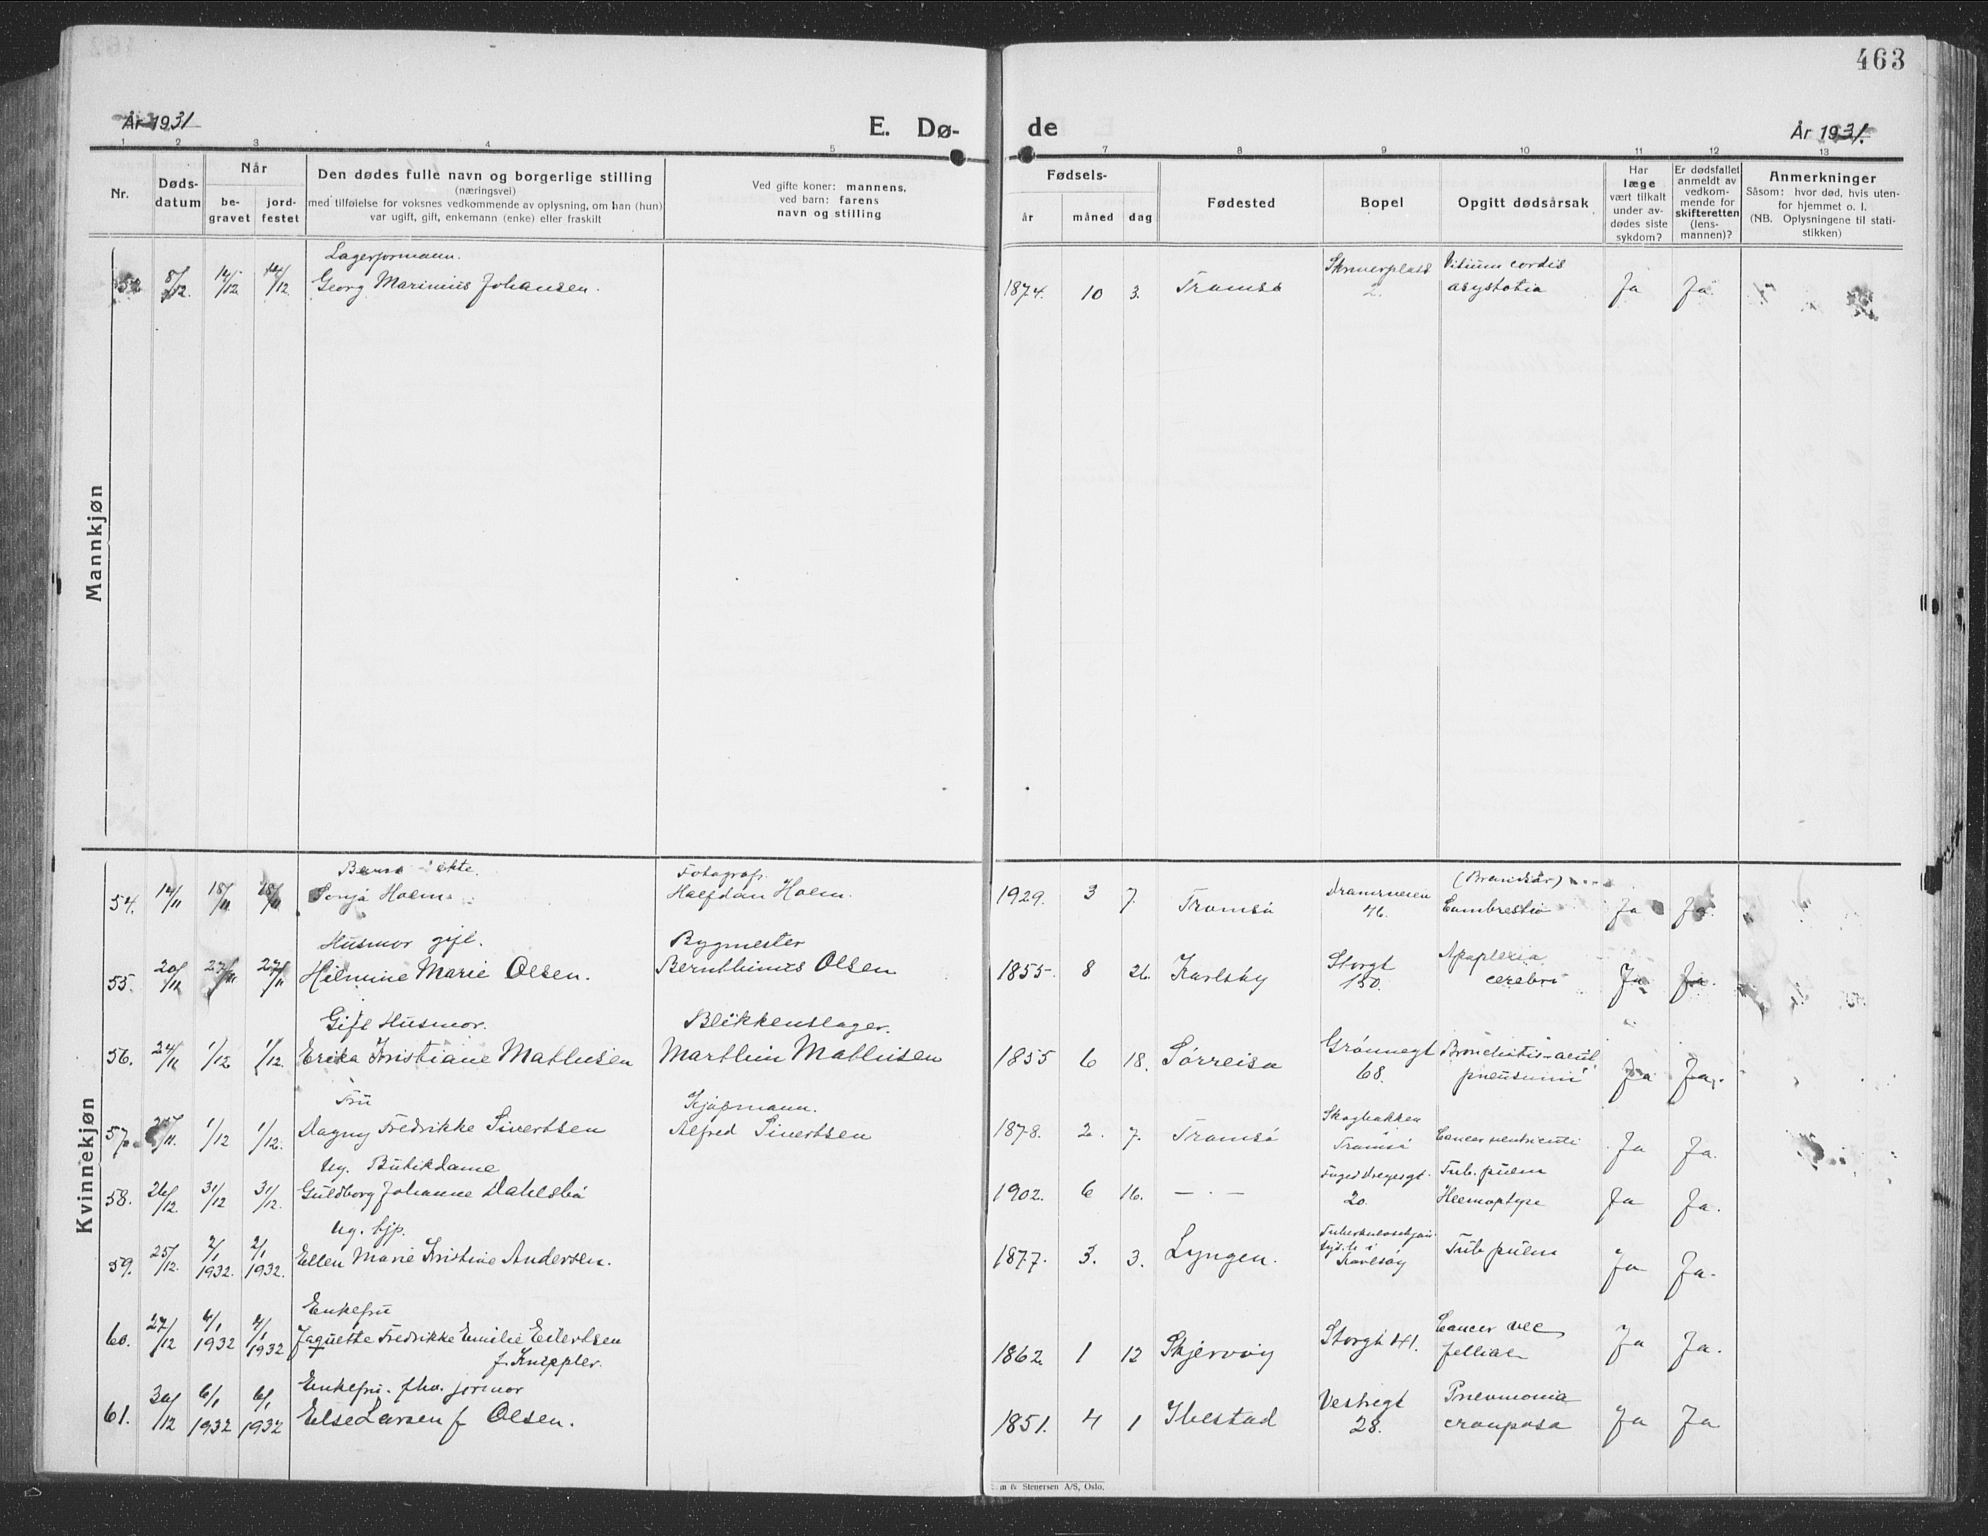 463
År 1931
E. Dø-
de
År 1931.
1 2 3 4 5 7 8 9 10 11 12 13
Nr.
Døds-
datum
Når
be-
gravet
jord-
festet
Den dødes fulle navn og borgerlige stilling
(næringsvei)
med tilføielse for voksnes vedkommende av oplysning, om han (hun)
var ugift, gift, enkemann (enke) eller fraskilt
Ved gifte koner: mannens,
ved barn: farens
navn og stilling
Fødsels-
år måned dag
Fødested
Bopel
Opgitt dødsårsak
Har
læge
vært tilkalt
under av-
dødes siste
sykdom?
Er dødsfallet
anmeldt av
vedkom-
mende for
skifteretten
(lens-
mannen)?
Anmerkninger
Såsom: hvor død, hvis uten-
for hjemmet o. l.
(NB. Oplysningene til stati-
stikken)
Mannkjøn
Lagerformann.
8/12. 14/12 14/12 Georg Marinius Johansen. 1874. 10 3. Tromsø 2. Vitium cordis
asystolia Ja Ja
Kvinnekjøn
Barn ekte. Fotograf.
54. 14/11 18/11 18/11 Sonja Holm. Halfdan Holm. 1929. 3 7. Tromsø Dramsveien
46. (Brandsår)
Combrestio Ja Ja.
Husmor gift. Bygmester
55. 20/11 27/11 27/11 Hilmine Marie Olsen. Bernthinus Olsen 1855. 8 26. Karlsøy Storgt
150. Apoplexia
cerebri Ja Ja.
Gift Husmor. Blikkenslager.
56. 24/11 1/12 1/12. Erika Kristiane Mathisen Marthin Mathisen 1855 6 18. Sørreisa Grønnegt
68. Bronchitis-acut
pneumoni Ja Ja.
Fru Kjøpmann.
57. 25/11. 1/12 1/12. Dagny Fredrikke Sivertsen Alfred Sivertsen 1878. 2. 7. Tromsø Skogbakken
Tromsø Cancer ventriculi Ja Ja.
Ug. Butikdame
58. 26/12. 31/12 31/12. Guldborg Johanne Dahlsbø 1902. 6 16. — . — 20. Tub. pulm
Hæmoptyse Ja Ja.
Ug. hjp.
59. 25/12. 2/1 1932. 2/1 1932. Ellen Marie Kristine Andersen. 1877. 3. 3. Lyngen. Tub. pulm Ja Ja.
Karlsøy
Enkefru
60. 27/12 4/1 1932 4/1 1932 Jaquette Fredrikke Emilie Eilertsen
f. Knippler. 1862. 1 12 Skjervøy Storgt 41. Cancer vec
felliae Ja Ja.
Enkefru. fhv. jormor
61. 30/12 6/1 1932 6/1 1932 Else Larsen f Olsen. 1851. 4 1 Ibestad Vestregt
28. Pneumonia
crouposa Ja Ja
Stenersen A/S, Oslo.